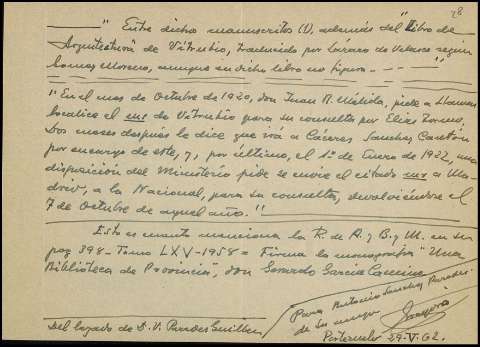 28
" Entre dichos manuscritos (1), además del "Libro de
Arquitectura de Vitrubio, traducido por Lázaro de Velasco según
Lomas Moreno, aunque en dicho libro no figura. - - - "
" En el mes de Octubre de 1920, don Juan R. Mélida, pide a
localice el de Vitrubio para su consulta por Elías Tormo.
Dos meses después le dice que irá a Cáceres Sánchez Cantón
por encargo de este, y, por último, el 1º de Enero de 1922, una
disposición del Ministerio pide se envíe el citado a Ma-
drid, a la Nacional, para su consulta, devolviéndose el
7 de Octubre de aquel año. "
Esto es cuanto menciona la R. de A. y B. y M. en su
pag 398 - Tomo LXV-1958 = Firma la monografía " Una
Biblioteca de Provincia", don Gerardo García Camino
Para Antonio Sánchez Paredes
de su amigo
Del legado de D. V. Paredes Guillén
29-V-62.